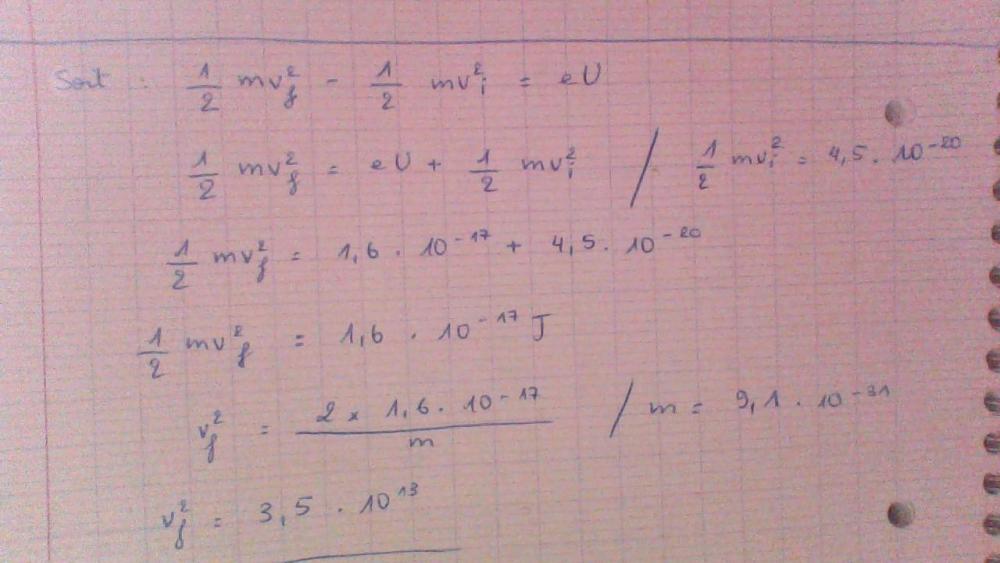 Soit : 1/2 mv_f² - 1/2 mv_i² = eU
1/2 mv_f² = eU + 1/2 mv_i² / 1/2 mv_i² = 4,5 . 10⁻²⁰
1/2 mv_f² = 1,6 . 10⁻¹⁷ + 4,5 . 10⁻²⁰
1/2 mv_f² = 1,6 . 10⁻¹⁷ J
v_f² = 2 × 1,6 . 10⁻¹⁷ / m / m = 9,1 . 10⁻³¹
v_f² = 3,5 . 10¹³